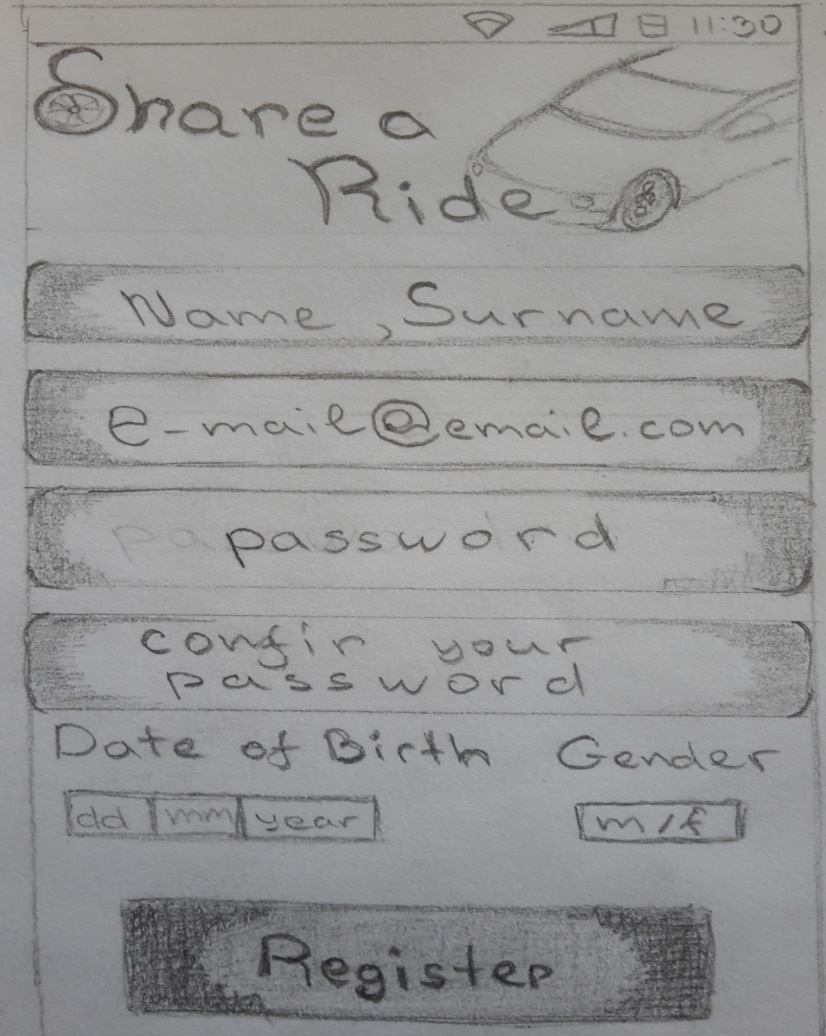 11:30
Share a
Ride
Name, Surname
e-mail@email.com
pa password
confir your
password
Date of Birth Gender
dd mm year m/f
Register